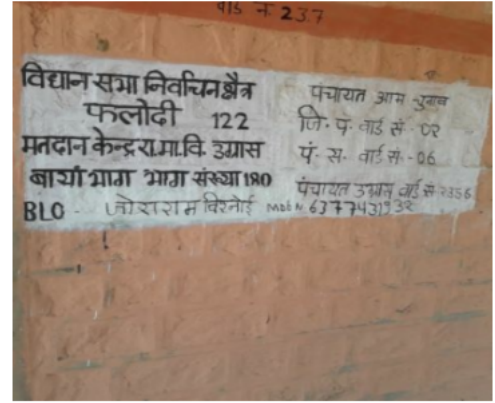 वार्ड नं. 237
विधान सभा निर्वाचन क्षैत्र
फलोदी 122
मतदान केन्द्र रा.मा.वि. उग्रास
बायां भाग भाग संख्या 180
BLO - जोराराम विश्नोई Mob N. 6377431932
पंचायत आम चुनाव
जि. प. वार्ड सं. - 02
पं. स. वार्ड सं. - 06
पंचायत उग्रास वार्ड सं 2356